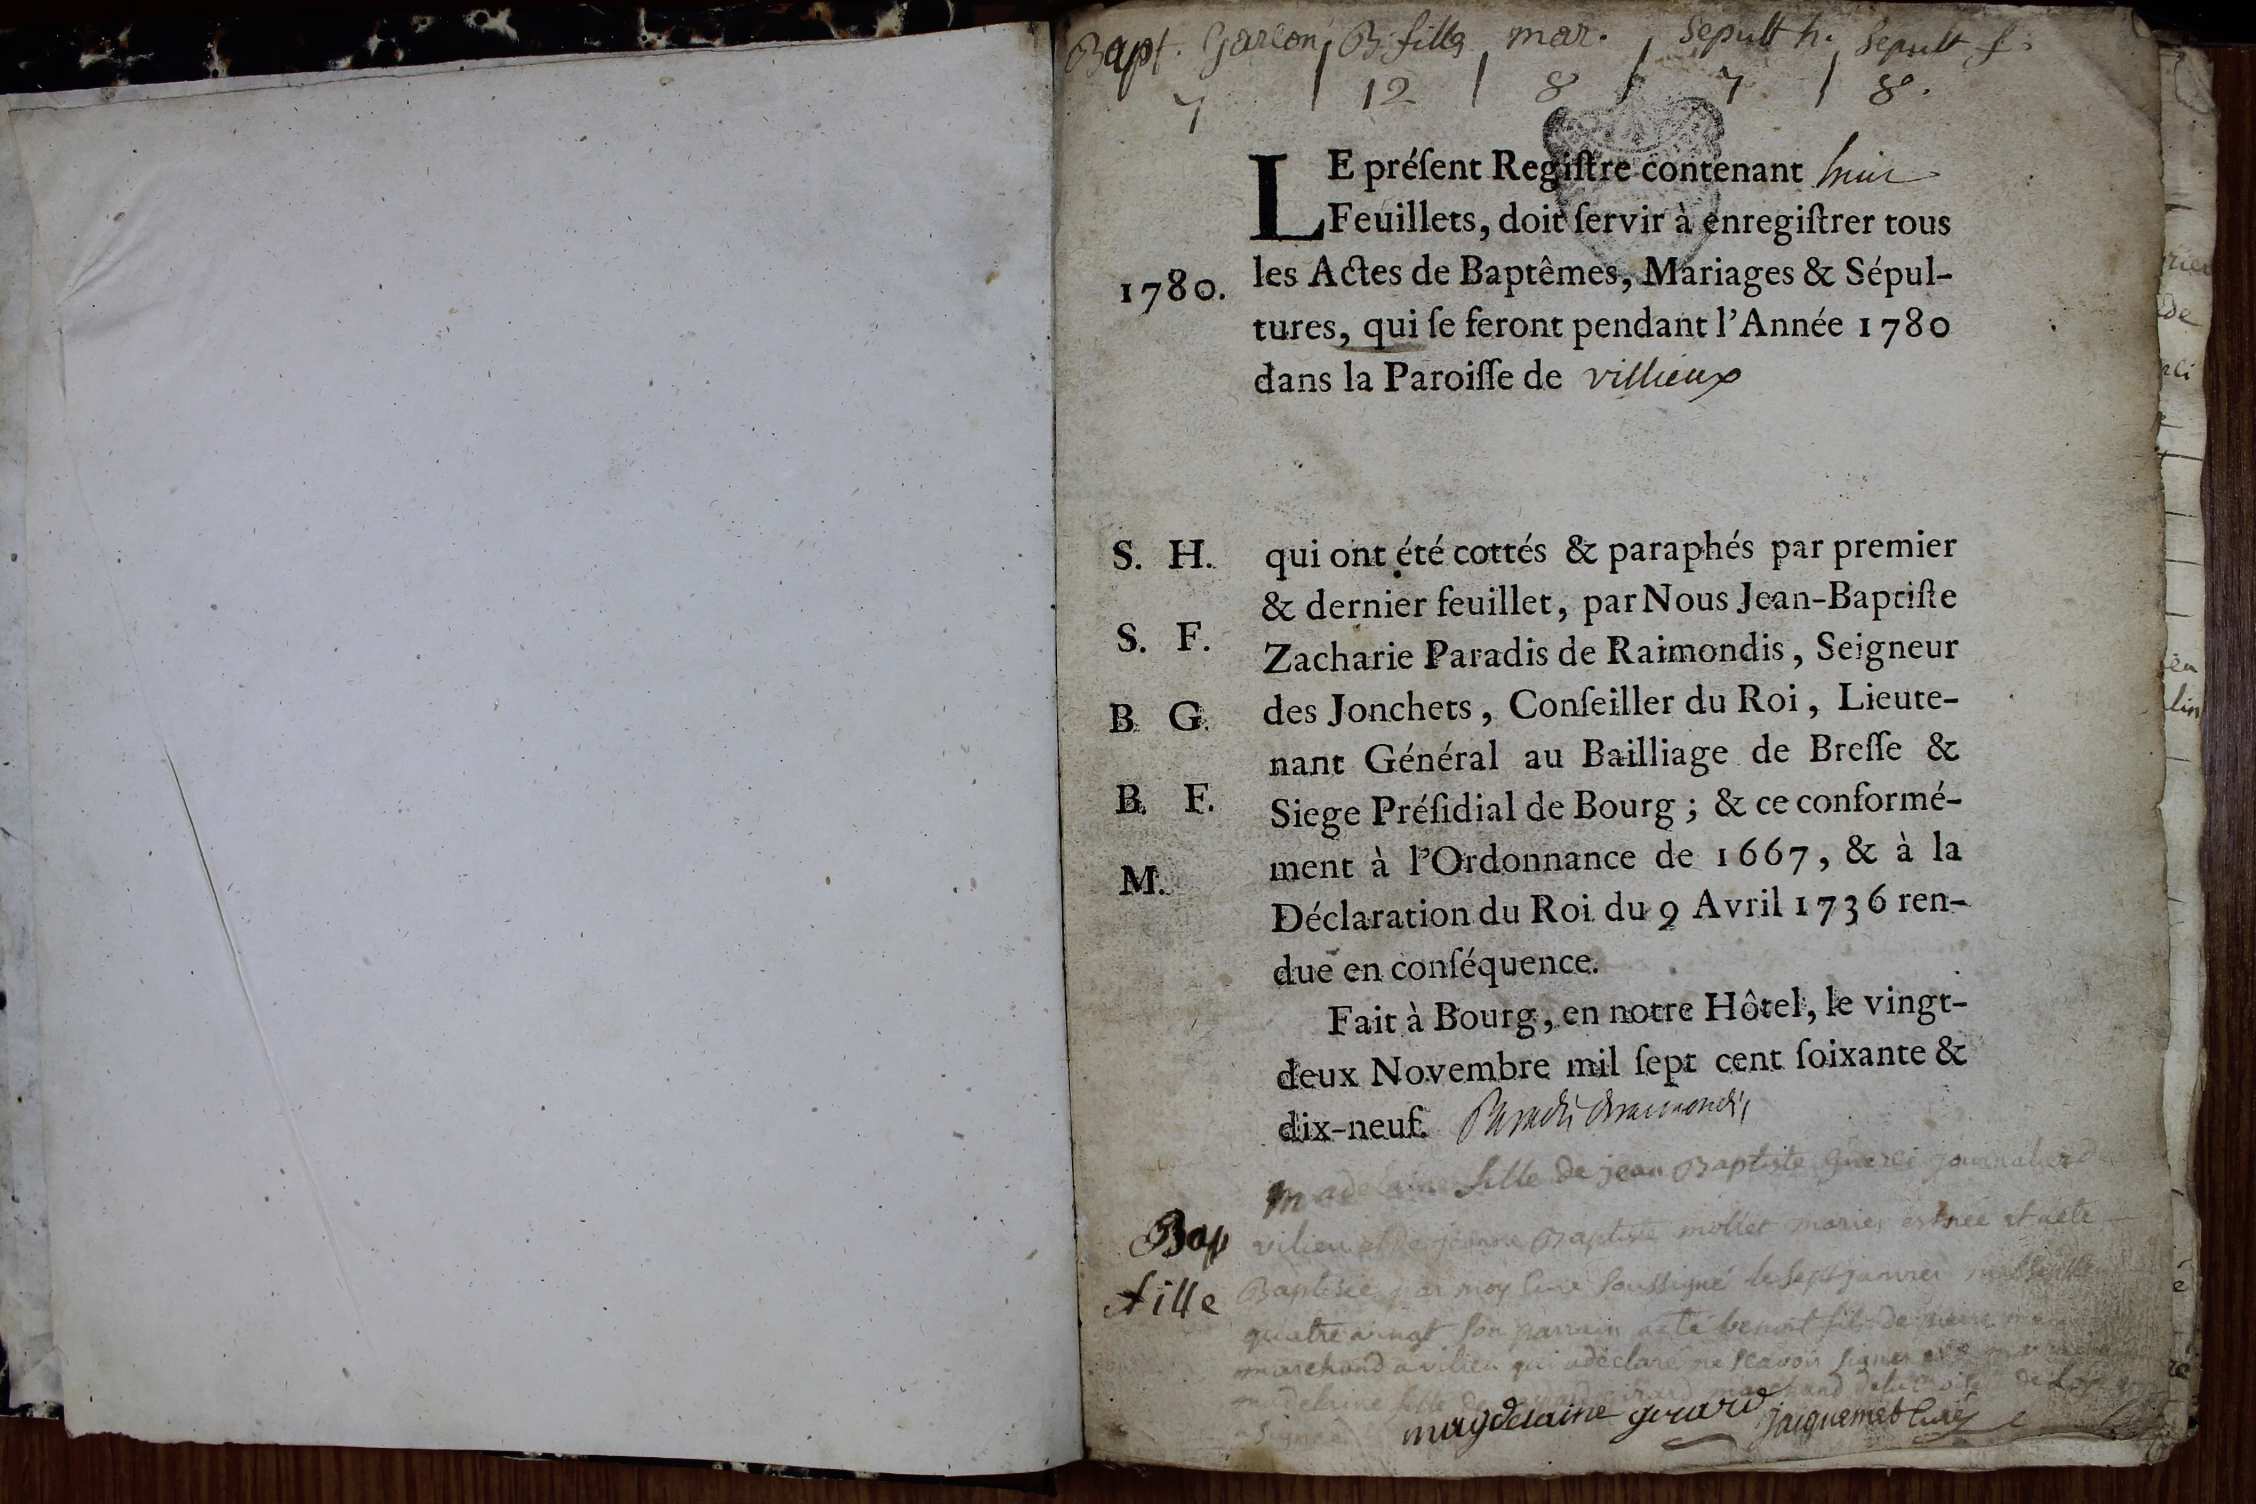 Bapt. garcon / B. fille / mar. / Sepult h. / Sepult f.
7 / 12 / 8 / 7 / 8.
LE préſent Regiſtre contenant huit
Feuillets, doit ſervir à enregiſtrer tous
1780.
les Actes de Baptêmes, Mariages & Sépul-
tures, qui ſe feront pendant l'Année 1780
dans la Paroiſſe de villieux
S. H.
qui ont été cottés & paraphés par premier
& dernier feuillet, par Nous Jean-Baptiſte
S. F.
Zacharie Paradis de Raimondis, Seigneur
B. G.
des Jonchets, Conſeiller du Roi, Lieute-
nant Général au Bailliage de Breſſe &
B. F.
Siege Préſidial de Bourg ; & ce conformé-
ment à l'Ordonnance de 1667, & à la
M.
Déclaration du Roi du 9 Avril 1736 ren-
due en conſéquence.
Fait à Bourg, en notre Hôtel, le vingt-
deux Novembre mil ſept cent ſoixante &
dix-neuf. Paradis deraimondis
madelaine fille de jean Baptiste journalier
Bap
vilieu et de jeanne Baptiste mollet mariés est née et aété
fille
Baptisée par moy Curé soussigné le sept janvier
quatre vingt son parrain aeté benoit fils de
marchand avilieu qui adéclaré ne scavoir signer
madelaine fille de girard marchand de
magdelaine girard jacquemet Curé